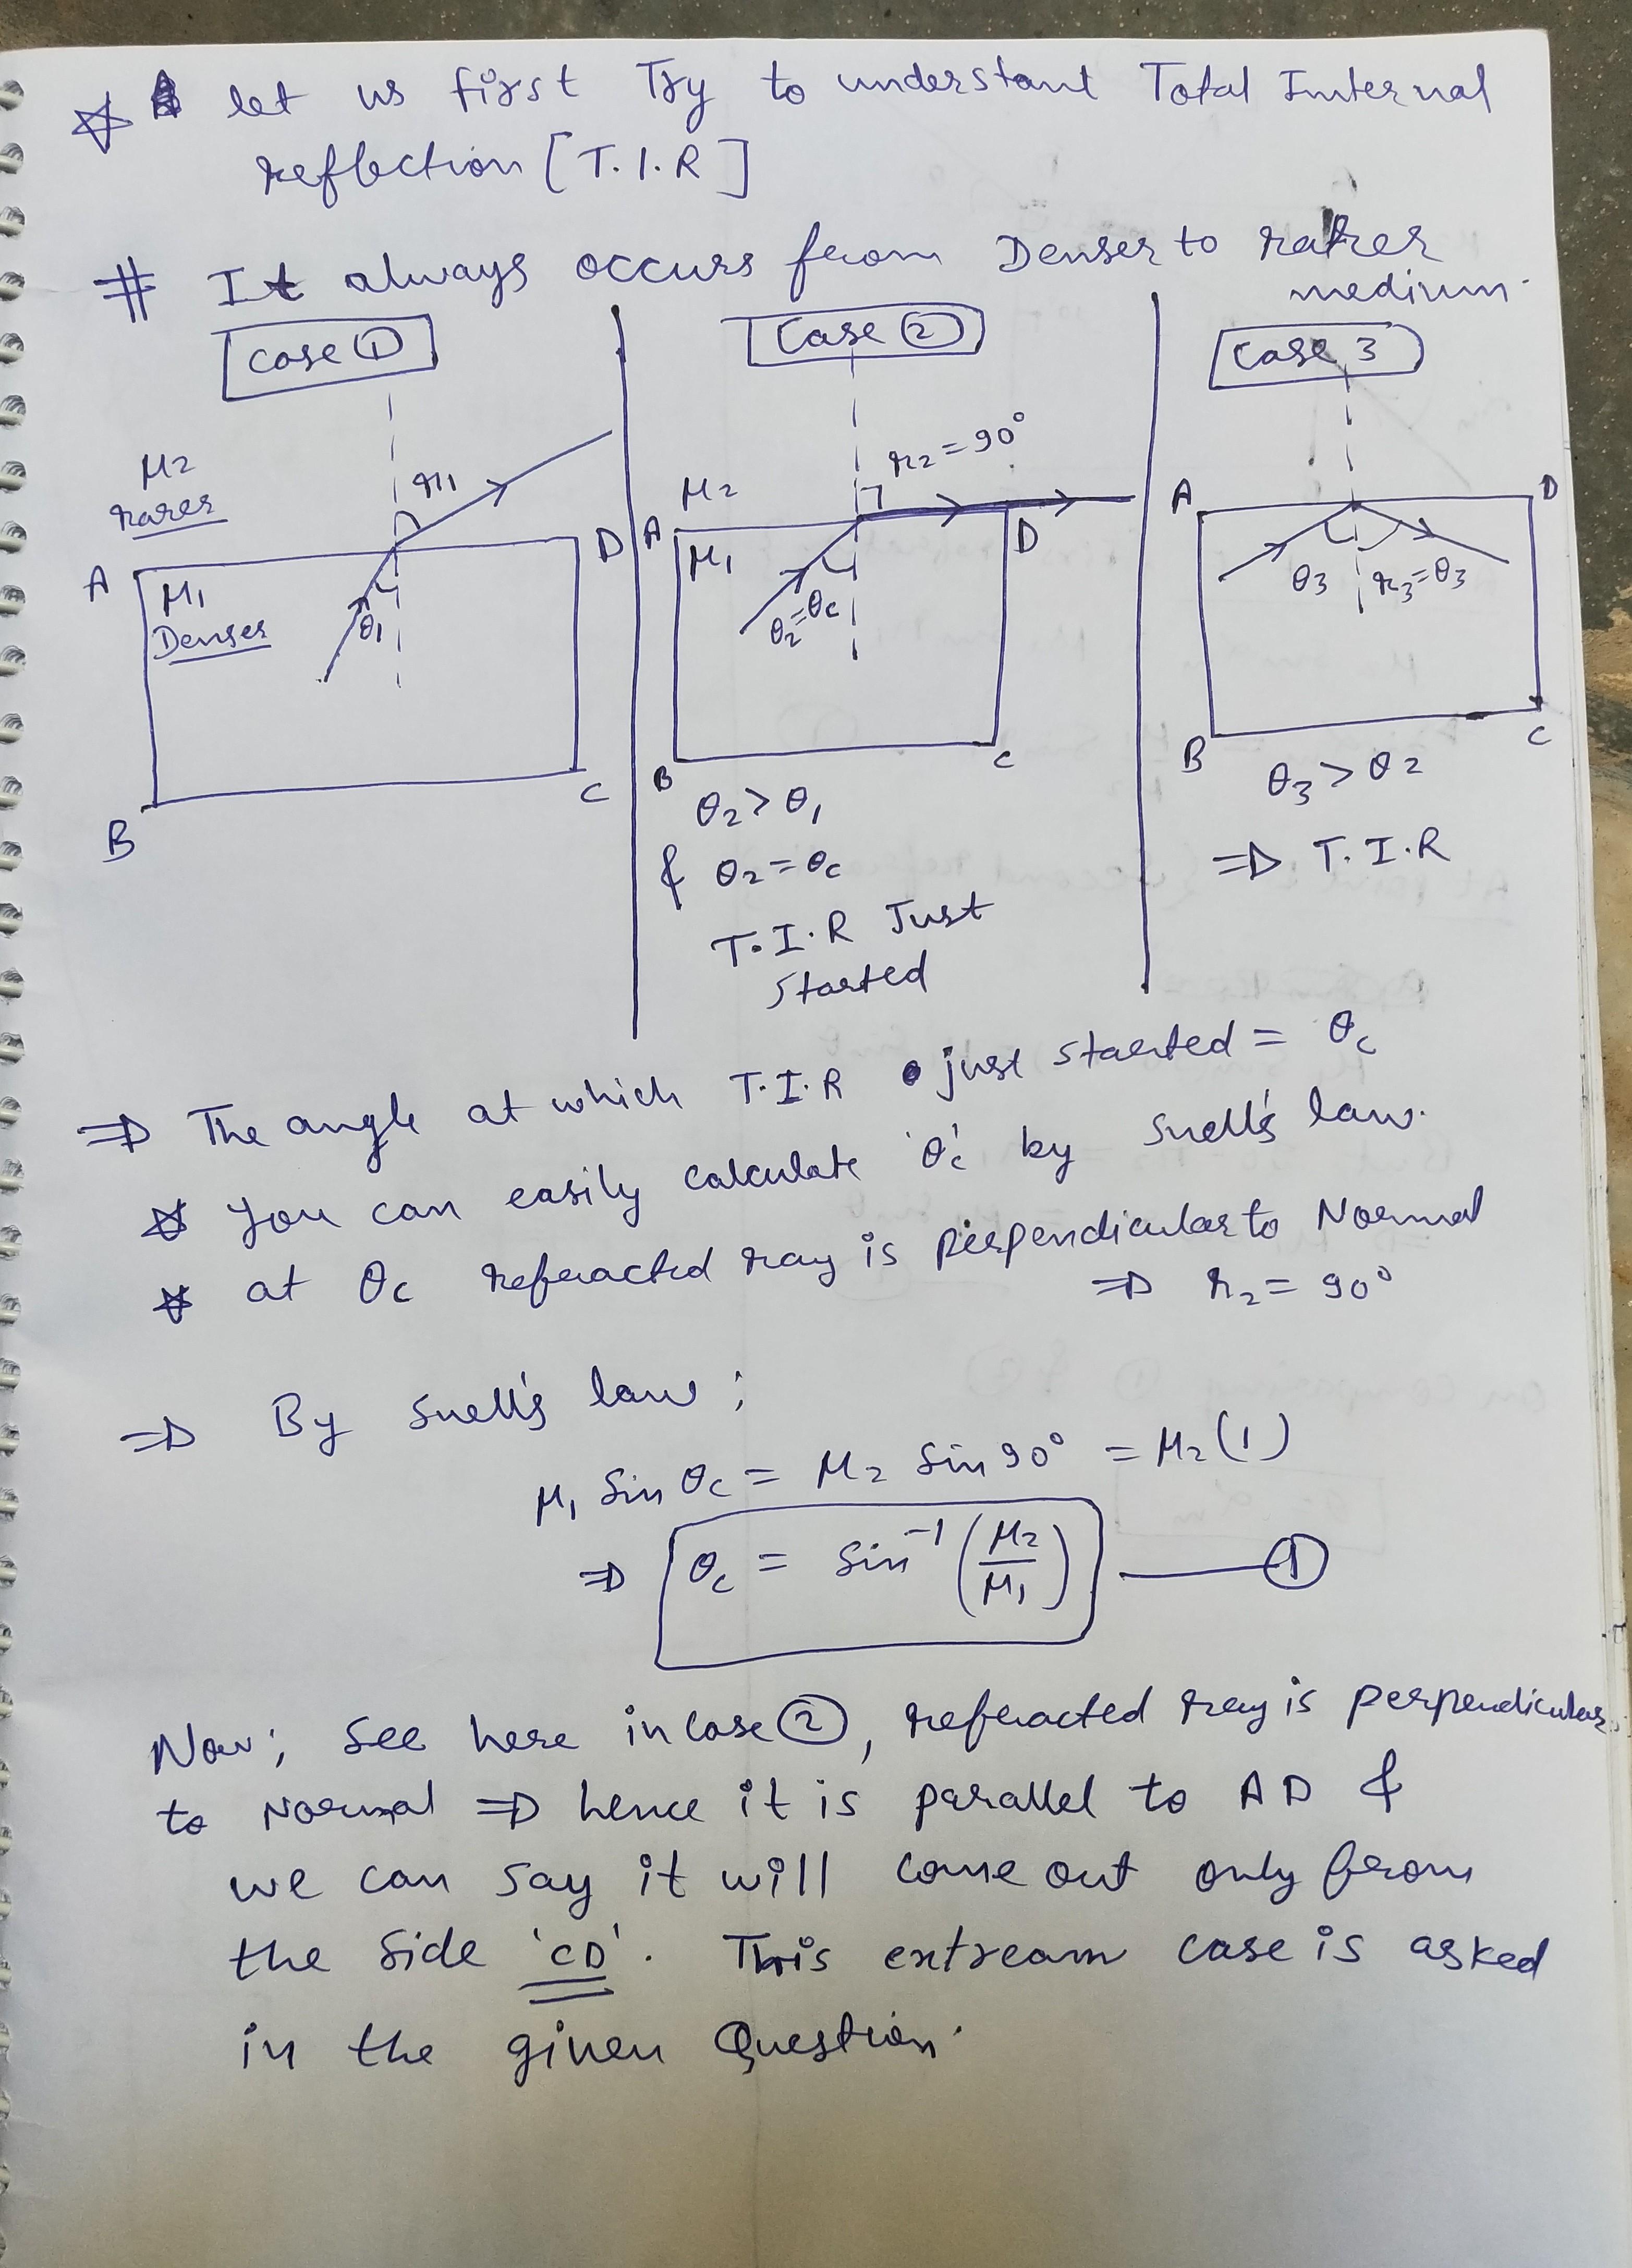 let us first Try to understant Total Internal
reflection [T.I.R]
# It always occurs from Denser to rarer
medium.
Case ①
Case ②
Case 3
μ2
rarer
r1
A
D
μ1
Denser
θ1
B
C
r2 = 90°
μ2
A
D
μ1
θ2=θc
B
C
θ2 > θ1
& θ2 = θc
T.I.R Just
started
A
D
θ3
r3=θ3
B
C
θ3 > θ2
⇒ T.I.R
⇒ The angle at which T.I.R just started = θc
☆ You can easily calculate 'θc' by Snell's law.
☆ at θc refracted ray is perpendicular to Normal
⇒ r2 = 90°
⇒ By Snell's law;
μ1 Sin θc = μ2 Sin 90° = μ2(1)
⇒ θc = Sin⁻¹ (μ2/μ1) — ①
Now; See here in case ②, refracted ray is perpendicular
to Normal ⇒ hence it is parallel to AD &
we can say it will come out only from
the side 'CD'. This extream case is asked
in the given Question.